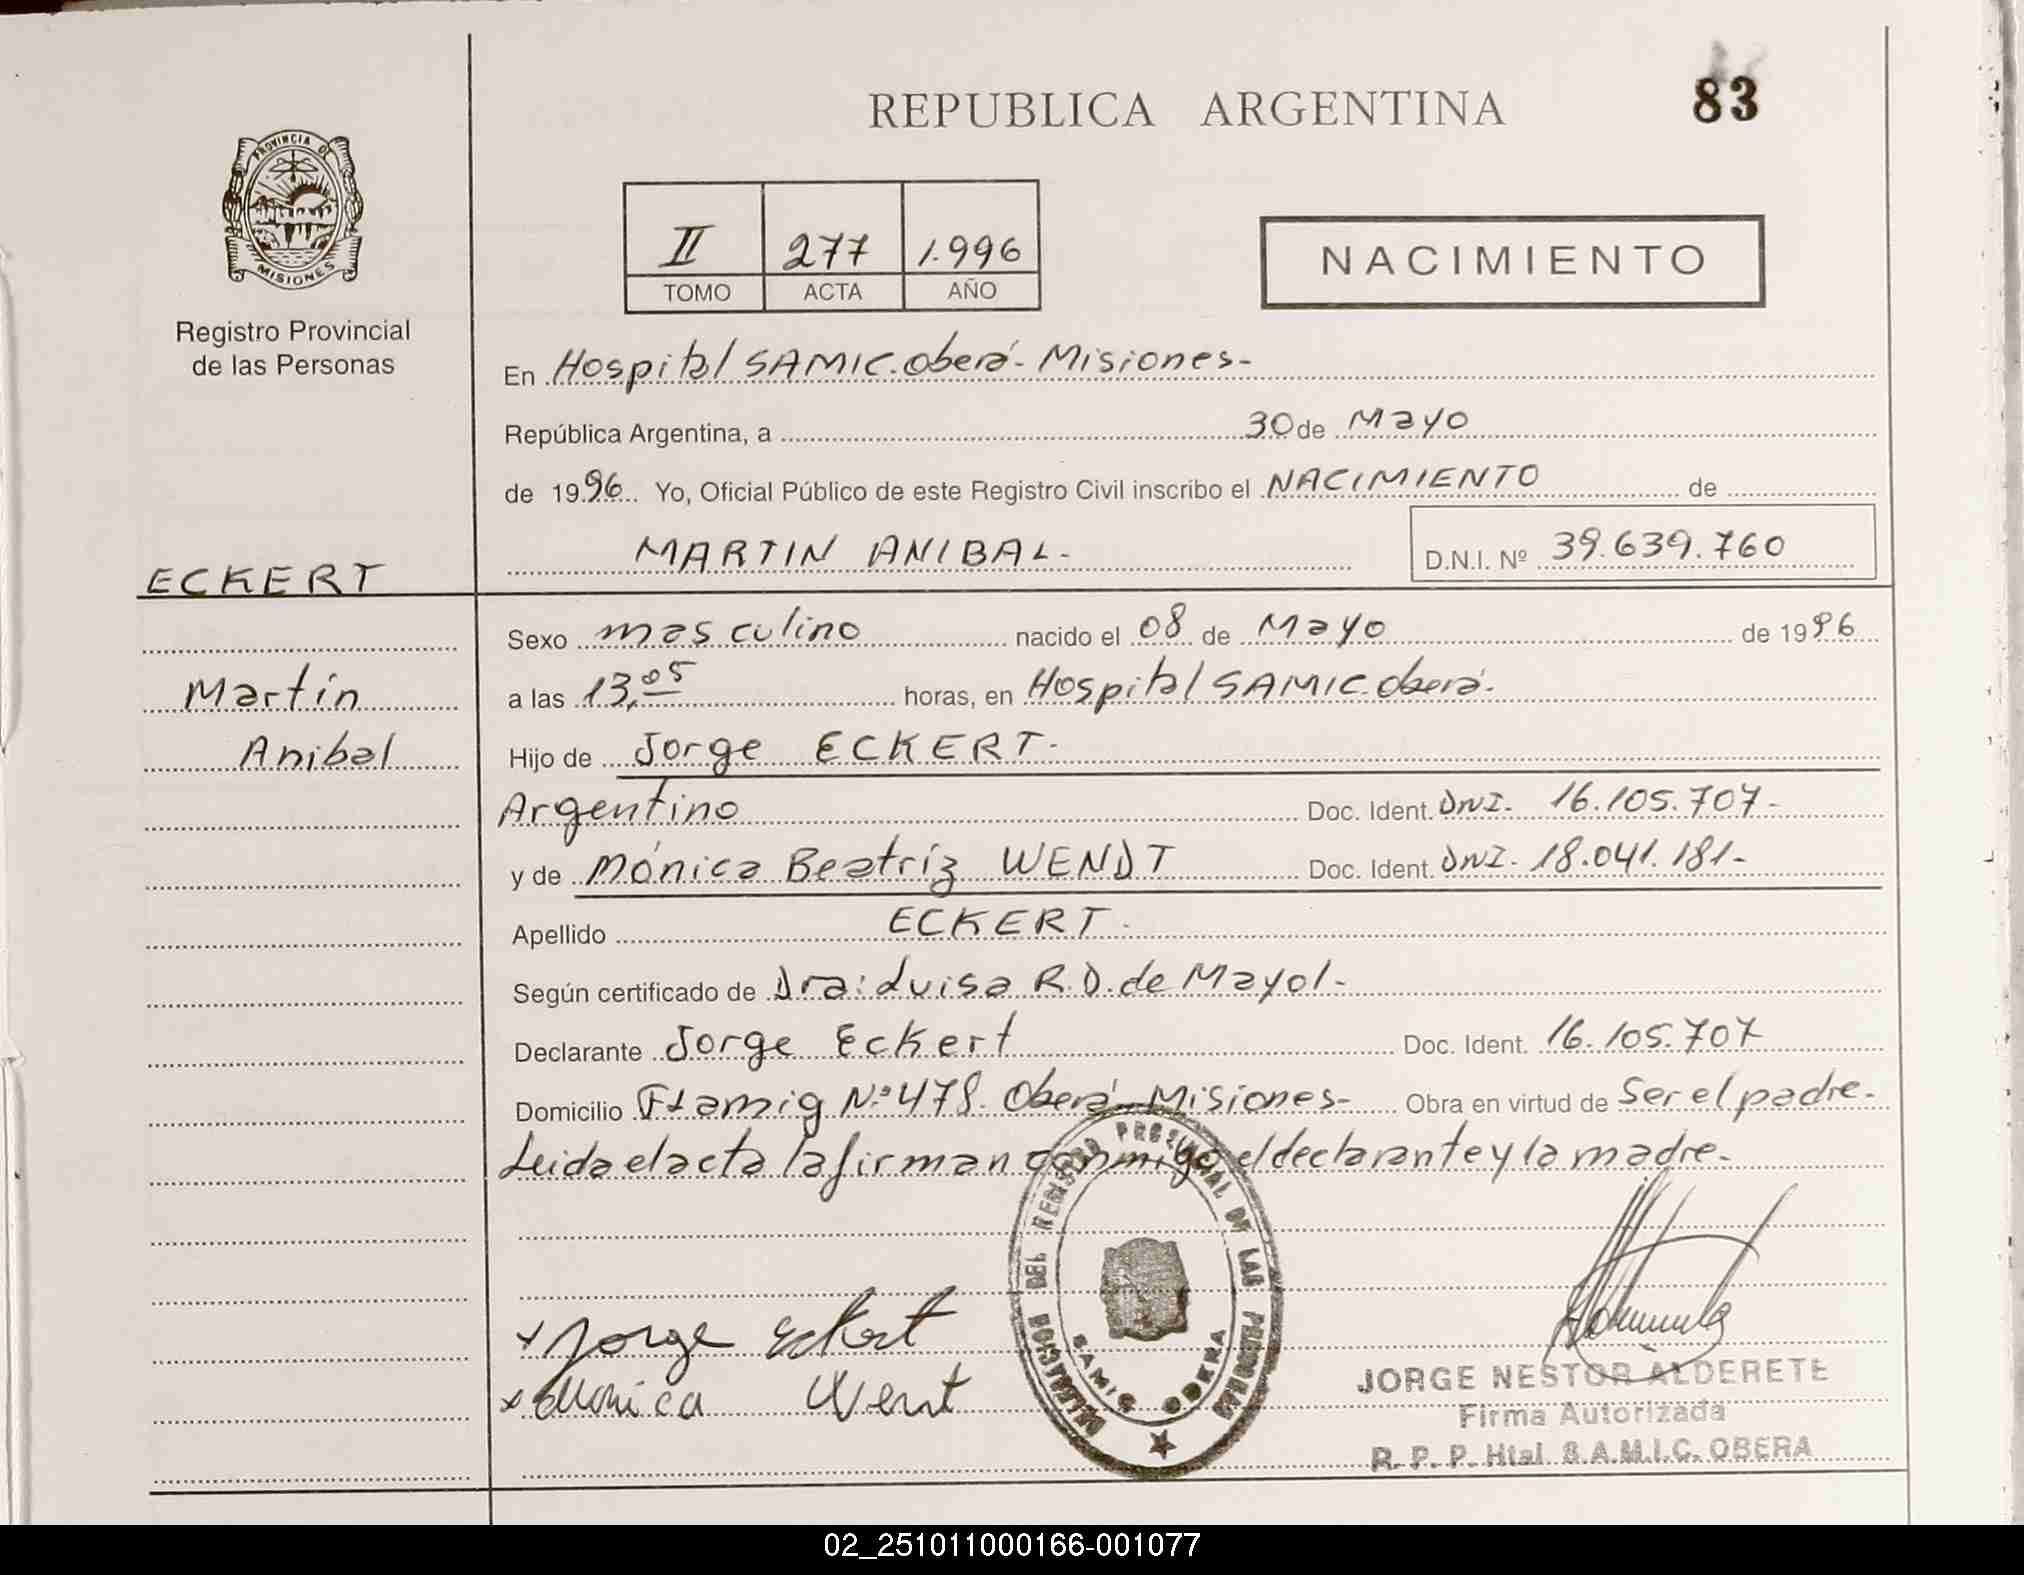 REPUBLICA ARGENTINA
83
PROVINCIA DE
MISIONES
Registro Provincial
de las Personas
II 277 1.996
TOMO ACTA AÑO
NACIMIENTO
En Hospital SAMIC. Oberá - Misiones-
República Argentina, a 30 de Mayo
de 1996 Yo, Oficial Público de este Registro Civil inscribo el NACIMIENTO de
MARTIN ANIBAL- D.N.I. Nº 39.639.760
ECKERT
Martín
Anibal
Sexo masculino nacido el 08 de Mayo de 1996
a las 13,05 horas, en Hospital SAMIC. Oberá.
Hijo de Jorge ECKERT-
Argentino Doc. Ident. DNI. 16.105.707-
y de Mónica Beatríz WENDT Doc. Ident. DNI. 18.041.181-
Apellido ECKERT.
Según certificado de Dra: Luisa R.D. de Mayol-
Declarante Jorge Eckert Doc. Ident. 16.105.707
Domicilio Nº 478. Oberá - Misiones- Obra en virtud de Ser el padre.
Leida el acta la firman conmigo el declarante y la madre.
DELEGACION DEL REGISTRO PROVINCIAL DE LAS PERSONAS
SAMIC OBERA
x Jorge Eckert
x Monica Went
JORGE NESTOR ALDERETE
Firma Autorizada
R. P. P. Htal. S.A.M.I.C. OBERA
02_251011000166-001077